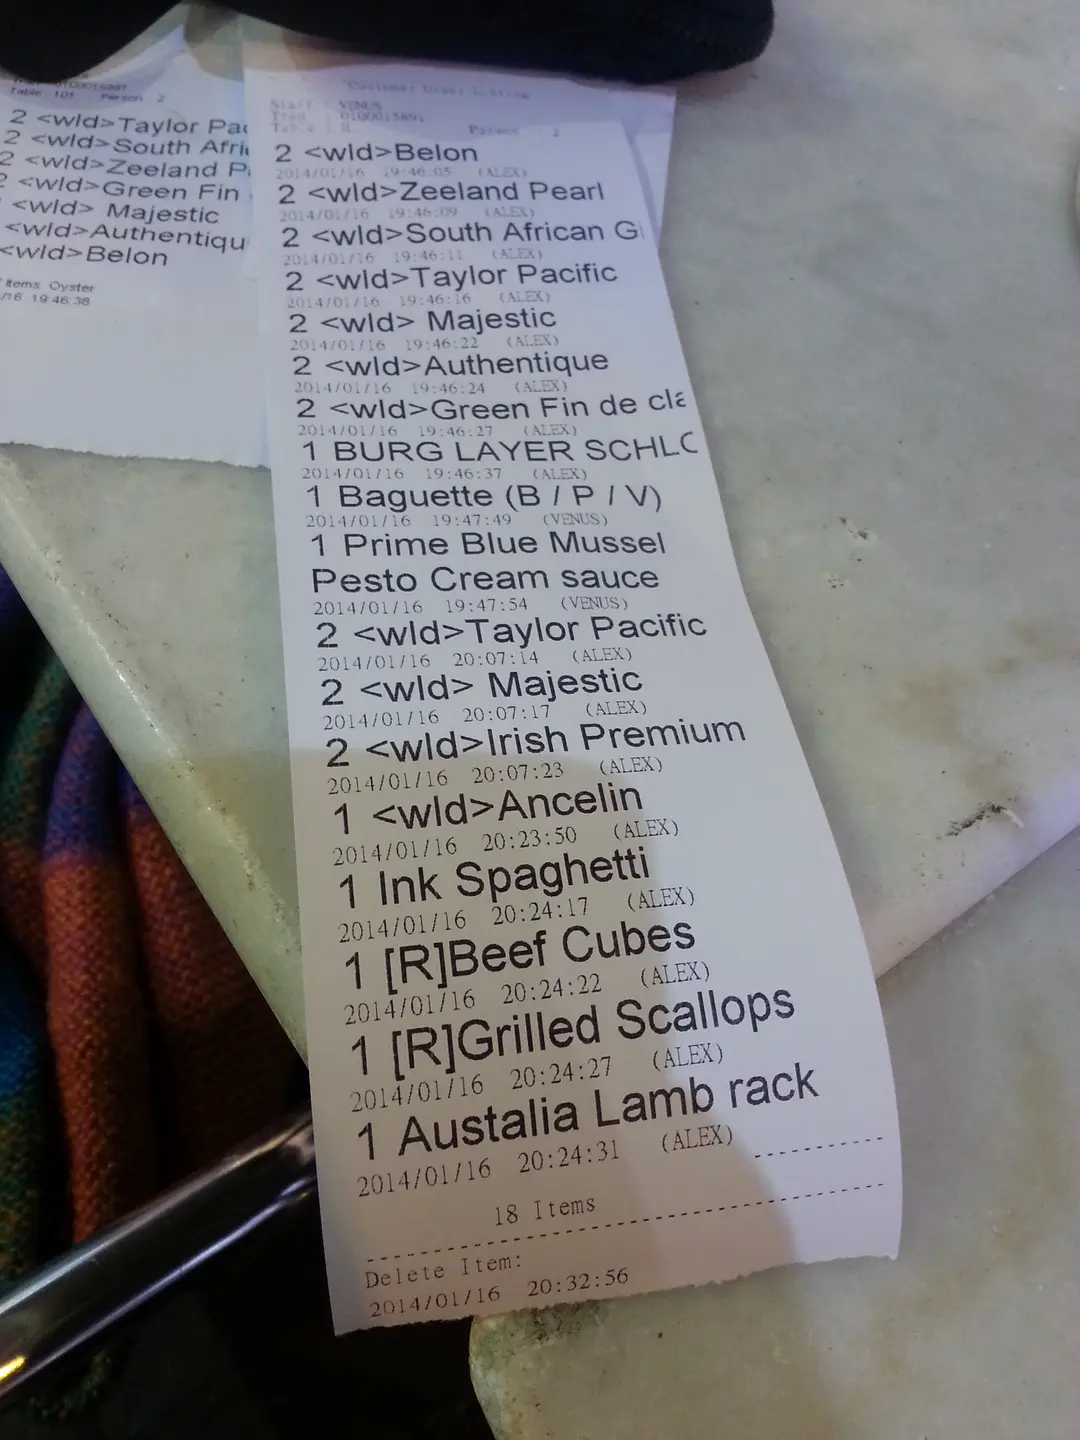 Table 101 Person 2
2 <wld>Taylor Pac
2 <wld>South Afri
2 <wld>Zeeland P
2 <wld>Green Fin
<wld> Majestic
<wld>Authentiqu
<wld>Belon
Items Oyster
/16 19:46:38
Customer Order Listing
Staff : VENUS
Table : Person : 2
2 <wld>Belon
2014/01/16 19:46:05 (ALEX)
2 <wld>Zeeland Pearl
2014/01/16 19:46:09 (ALEX)
2 <wld>South African G
2014/01/16 19:46:11 (ALEX)
2 <wld>Taylor Pacific
2014/01/16 19:46:16 (ALEX)
2 <wld> Majestic
2014/01/16 19:46:22 (ALEX)
2 <wld>Authentique
2014/01/16 19:46:24 (ALEX)
2 <wld>Green Fin de cla
2014/01/16 19:46:27 (ALEX)
1 BURG LAYER SCHLO
2014/01/16 19:46:37 (ALEX)
1 Baguette (B / P / V)
2014/01/16 19:47:49 (VENUS)
1 Prime Blue Mussel
Pesto Cream sauce
2014/01/16 19:47:54 (VENUS)
2 <wld>Taylor Pacific
2014/01/16 20:07:14 (ALEX)
2 <wld> Majestic
2014/01/16 20:07:17 (ALEX)
2 <wld>Irish Premium
2014/01/16 20:07:23 (ALEX)
1 <wld>Ancelin
2014/01/16 20:23:50 (ALEX)
1 Ink Spaghetti
2014/01/16 20:24:17 (ALEX)
1 [R]Beef Cubes
2014/01/16 20:24:22 (ALEX)
1 [R]Grilled Scallops
2014/01/16 20:24:27 (ALEX)
1 Austalia Lamb rack
2014/01/16 20:24:31 (ALEX)
18 Items
Delete Item:
2014/01/16 20:32:56